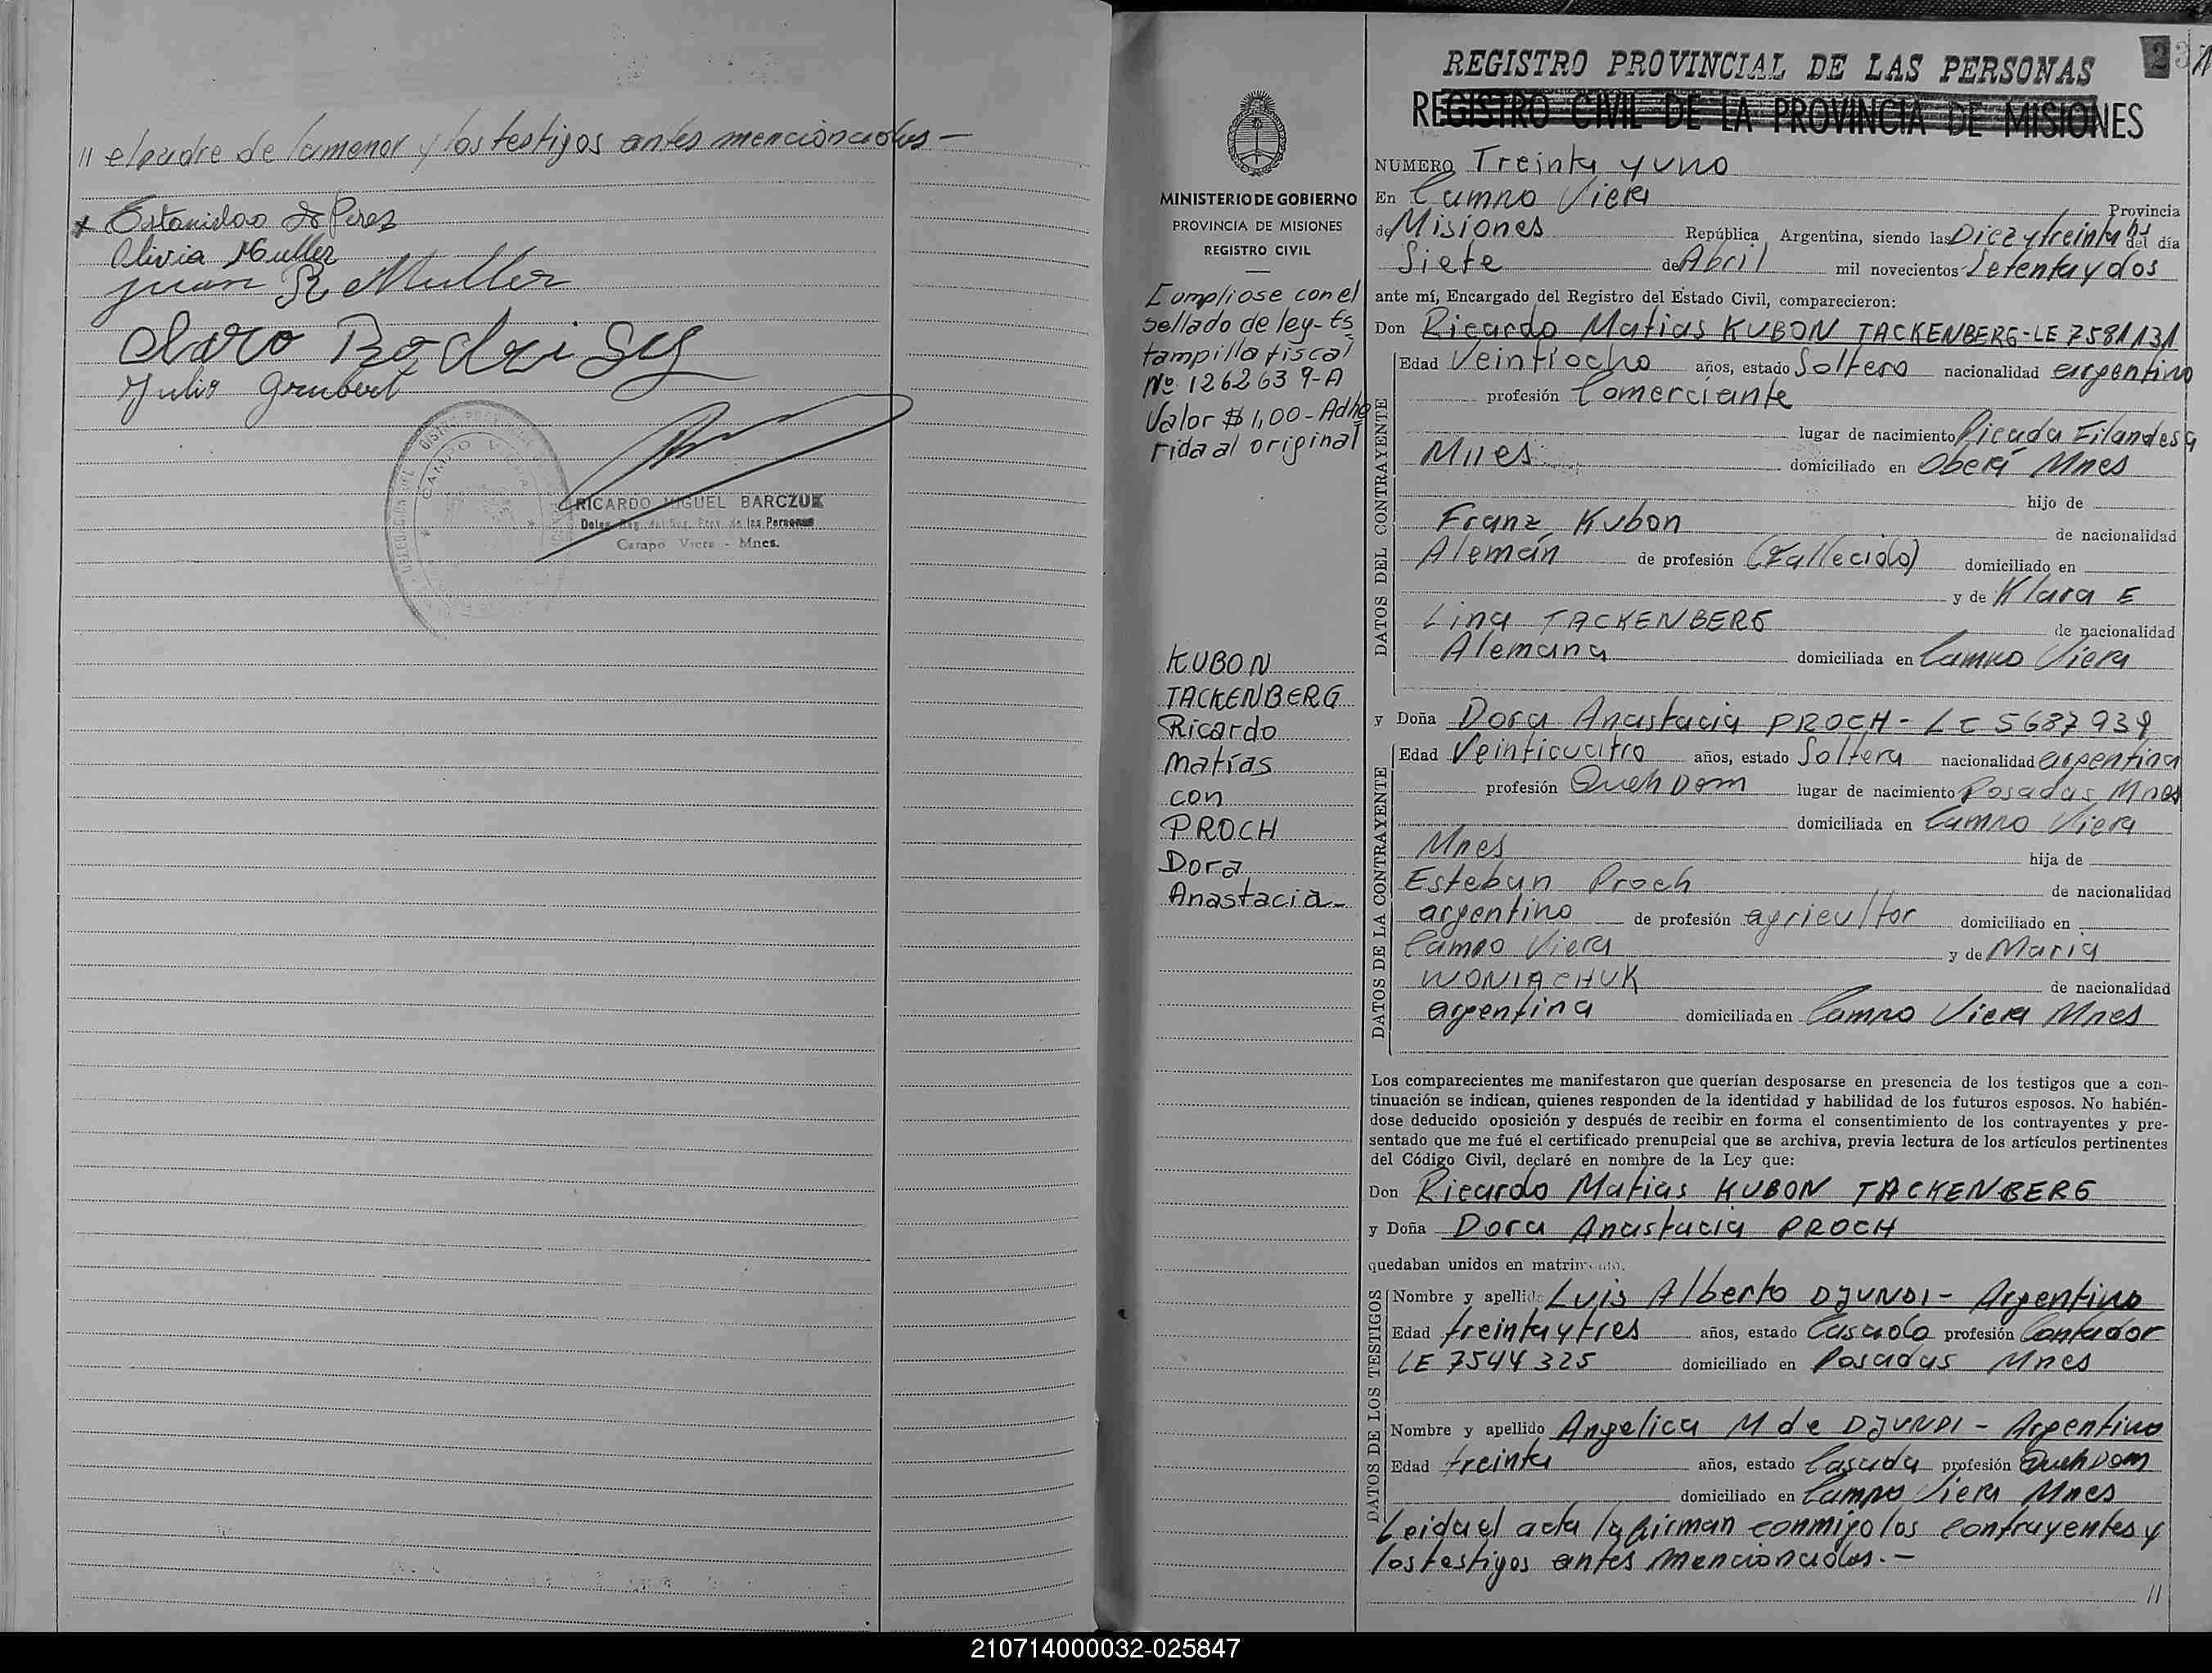 // el padre de la menor y los testigos antes mencionados —
Olivia Muller
Juan R Muller
Julio Grubert
CAMPO VIERA
RICARDO MIGUEL BARCZUK
Campo Viera - Mnes.
MINISTERIO DE GOBIERNO
PROVINCIA DE MISIONES
REGISTRO CIVIL
Cumpliose con el
sellado de ley-Es
tampilla fiscal
Nº 1262639-A
Valor $ 1,00-Adhe
rida al original
KUBON
TACKENBERG
Ricardo
Matías
con
PROCH
Dora
Anastacia-
REGISTRO PROVINCIAL DE LAS PERSONAS
REGISTRO CIVIL DE LA PROVINCIA DE MISIONES
NUMERO Treinta y uno
En Campo Viera
Provincia
de Misiones República Argentina, siendo las Diez y treinta hs del día
Siete de Abril mil novecientos Setenta y dos
ante mí, Encargado del Registro del Estado Civil, comparecieron:
DATOS DEL CONTRAYENTE
Don Ricardo Matias KUBON TACKENBERG-LE 7581131
Edad Veintiocho años, estado Soltero nacionalidad argentino
profesión Comerciante
lugar de nacimiento Picada Filandesa
Mnes domiciliado en Oberá Mnes
hijo de
Franz Kubon de nacionalidad
Alemán de profesión (Fallecido) domiciliado en
y de Klara E
Lina TACKENBERG de nacionalidad
Alemana domiciliada en Campo Viera
DATOS DE LA CONTRAYENTE
y Doña Dora Anastacia PROCH- LC 5687939
Edad Veinticuatro años, estado Soltera nacionalidad argentina
profesión Queh Dom lugar de nacimiento Posadas Mnes
domiciliada en Campo Viera
Mnes hija de
Esteban Proch de nacionalidad
argentino de profesión agricultor domiciliado en
Campo Viera y de Maria
WONIACHUK de nacionalidad
argentina domiciliada en Campo Viera Mnes
Los comparecientes me manifestaron que querían desposarse en presencia de los testigos que a con-
tinuación se indican, quienes responden de la identidad y habilidad de los futuros esposos. No habién-
dose deducido oposición y después de recibir en forma el consentimiento de los contrayentes y pre-
sentado que me fué el certificado prenupcial que se archiva, previa lectura de los artículos pertinentes
del Código Civil, declaré en nombre de la Ley que:
Don Ricardo Matias KUBON TACKENBERG
y Doña Dora Anastacia PROCH
quedaban unidos en matrimonio.
DATOS DE LOS TESTIGOS
Nombre y apellido Luis Alberto DJUNDI- Argentino
Edad treinta y tres años, estado Casado profesión Contador
LE 7544325 domiciliado en Posadas Mnes
Nombre y apellido Angelica M de DJUNDI- Argentino
Edad treinta años, estado Casada profesión Queh DOM
domiciliado en Campo Viera Mnes
Leida el acta la firman conmigo los contrayentes y
los testigos antes mencionados.-
//
210714000032-025847